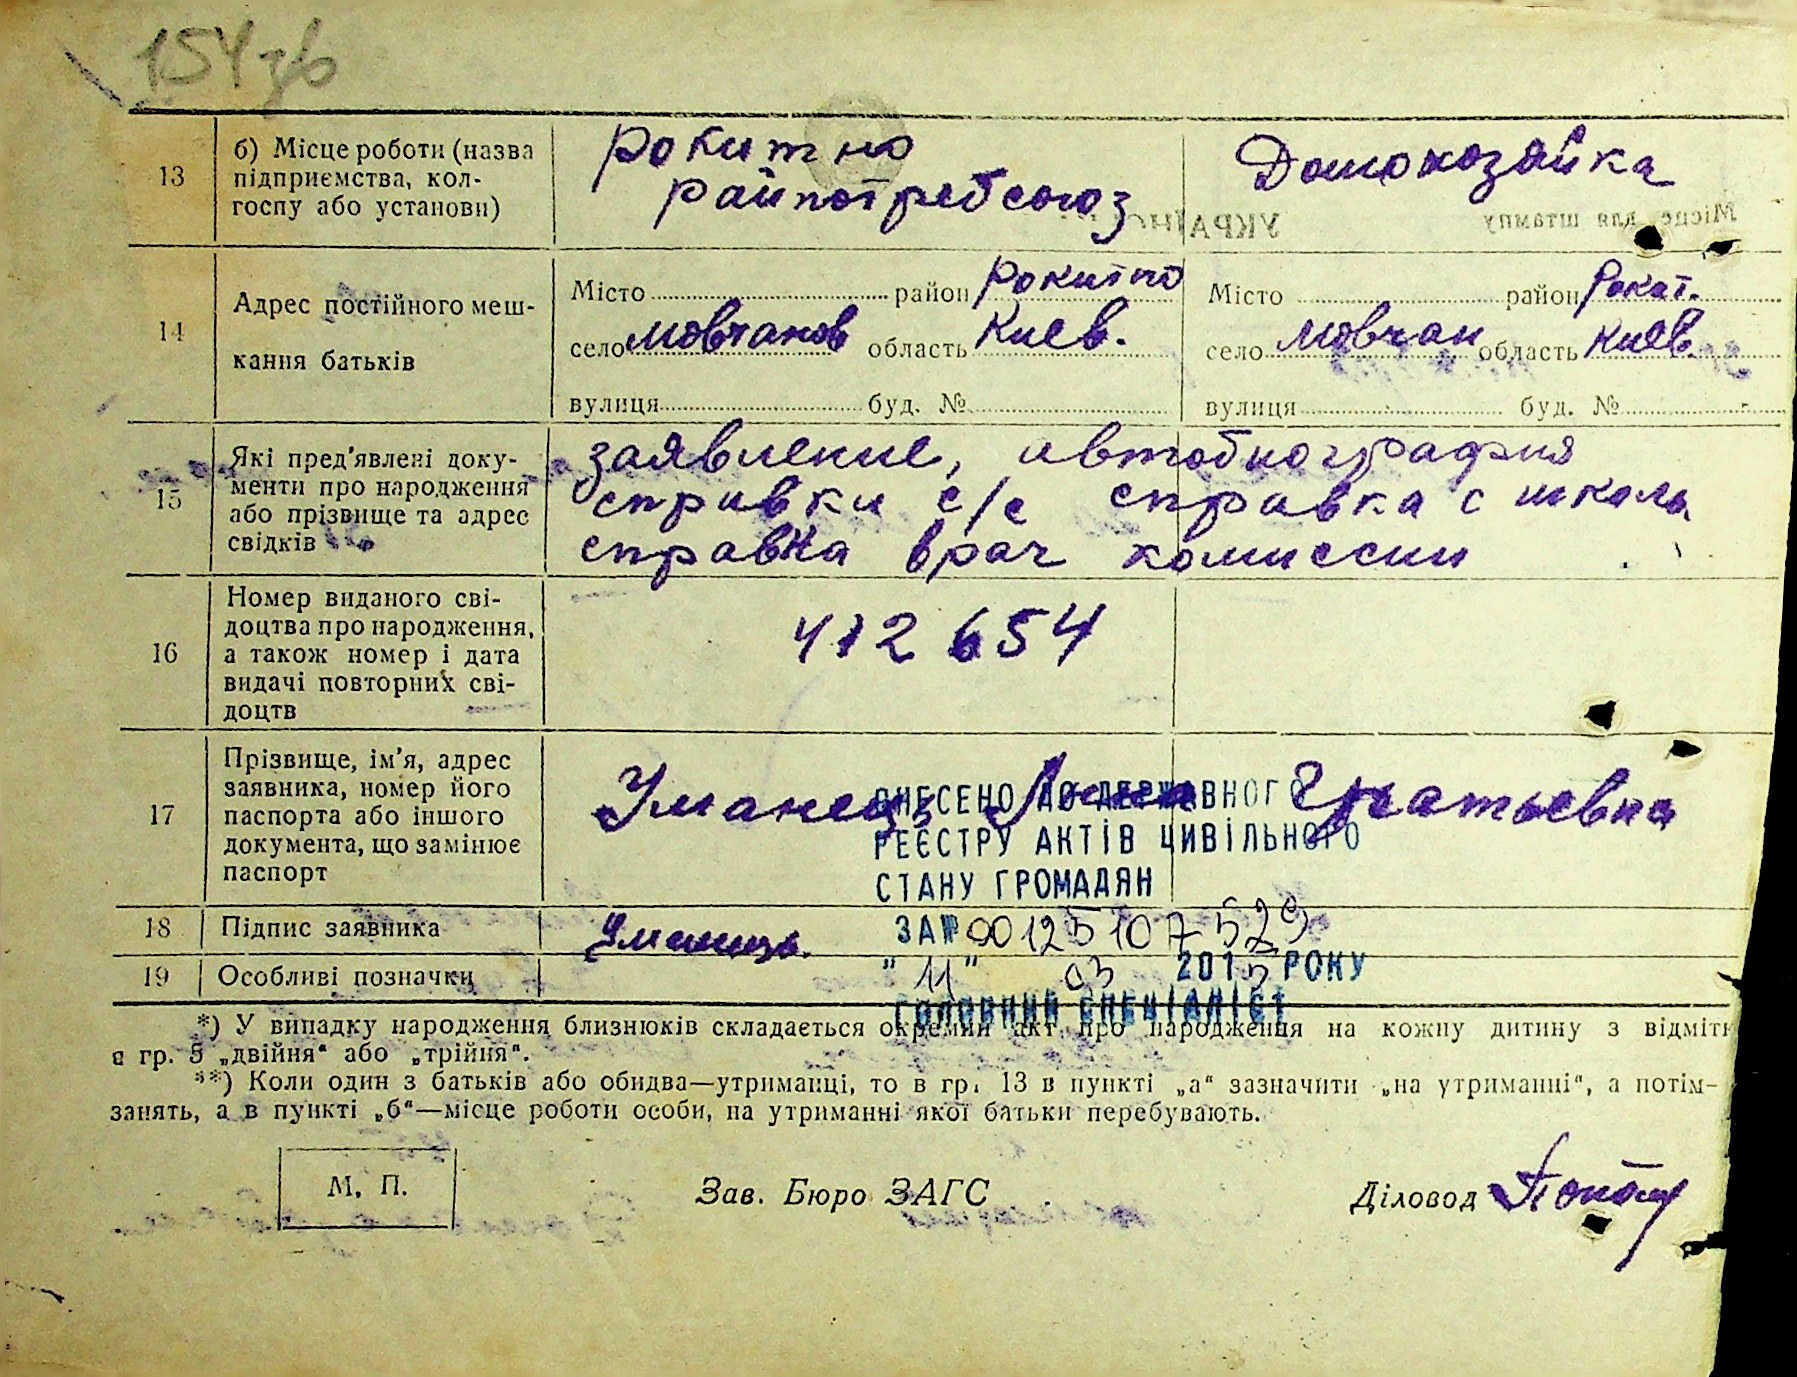 154 зв
13 б) Місце роботи (назва підприємства, кол-
госпу або установи)
Рокитно
райпотребсоюз
Домохозяйка
Місце для штампу
УКРАЇН
14 Адрес постійного меш-
кання батьків
Місто район Рокитно
село Мовчанов область Киев.
вулиця буд. №
Місто район Рокит.
село Мовчан область Киев.
вулиця буд. №
15 Які пред'явлені доку-
менти про народження
або прізвище та адрес
свідків
заявление, автобиография
справки с/с справка с школы
справка врач комиссии
16 Номер виданого сві-
доцтва про народження,
а також номер і дата
видачі повторних сві-
доцтв
412654
17 Прізвище, ім'я, адрес
заявника, номер його
паспорта або іншого
документа, що замінює
паспорт
Уманец Игнатьевна
ВНЕСЕНО ДО ДЕРЖАВНОГО
РЕЄСТРУ АКТІВ ЦИВІЛЬНОГО
СТАНУ ГРОМАДЯН
ЗА № 00125107529
" 11 " 03 2015 РОКУ
ГОЛОВНИЙ СПЕЦІАЛІСТ
18 Підпис заявника
19 Особливі позначки
*) У випадку народження близнюків складається окремий акт про народження на кожну дитину з відмітк
в гр. 5 „двійня“ або „трійня“.
**) Коли один з батьків або обидва—утриманці, то в гр. 13 в пункті „а“ зазначити „на утриманні“, а потім—
занять, а в пункті „б“—місце роботи особи, на утриманні якої батьки перебувають.
М. П.
Зав. Бюро ЗАГС
Діловод